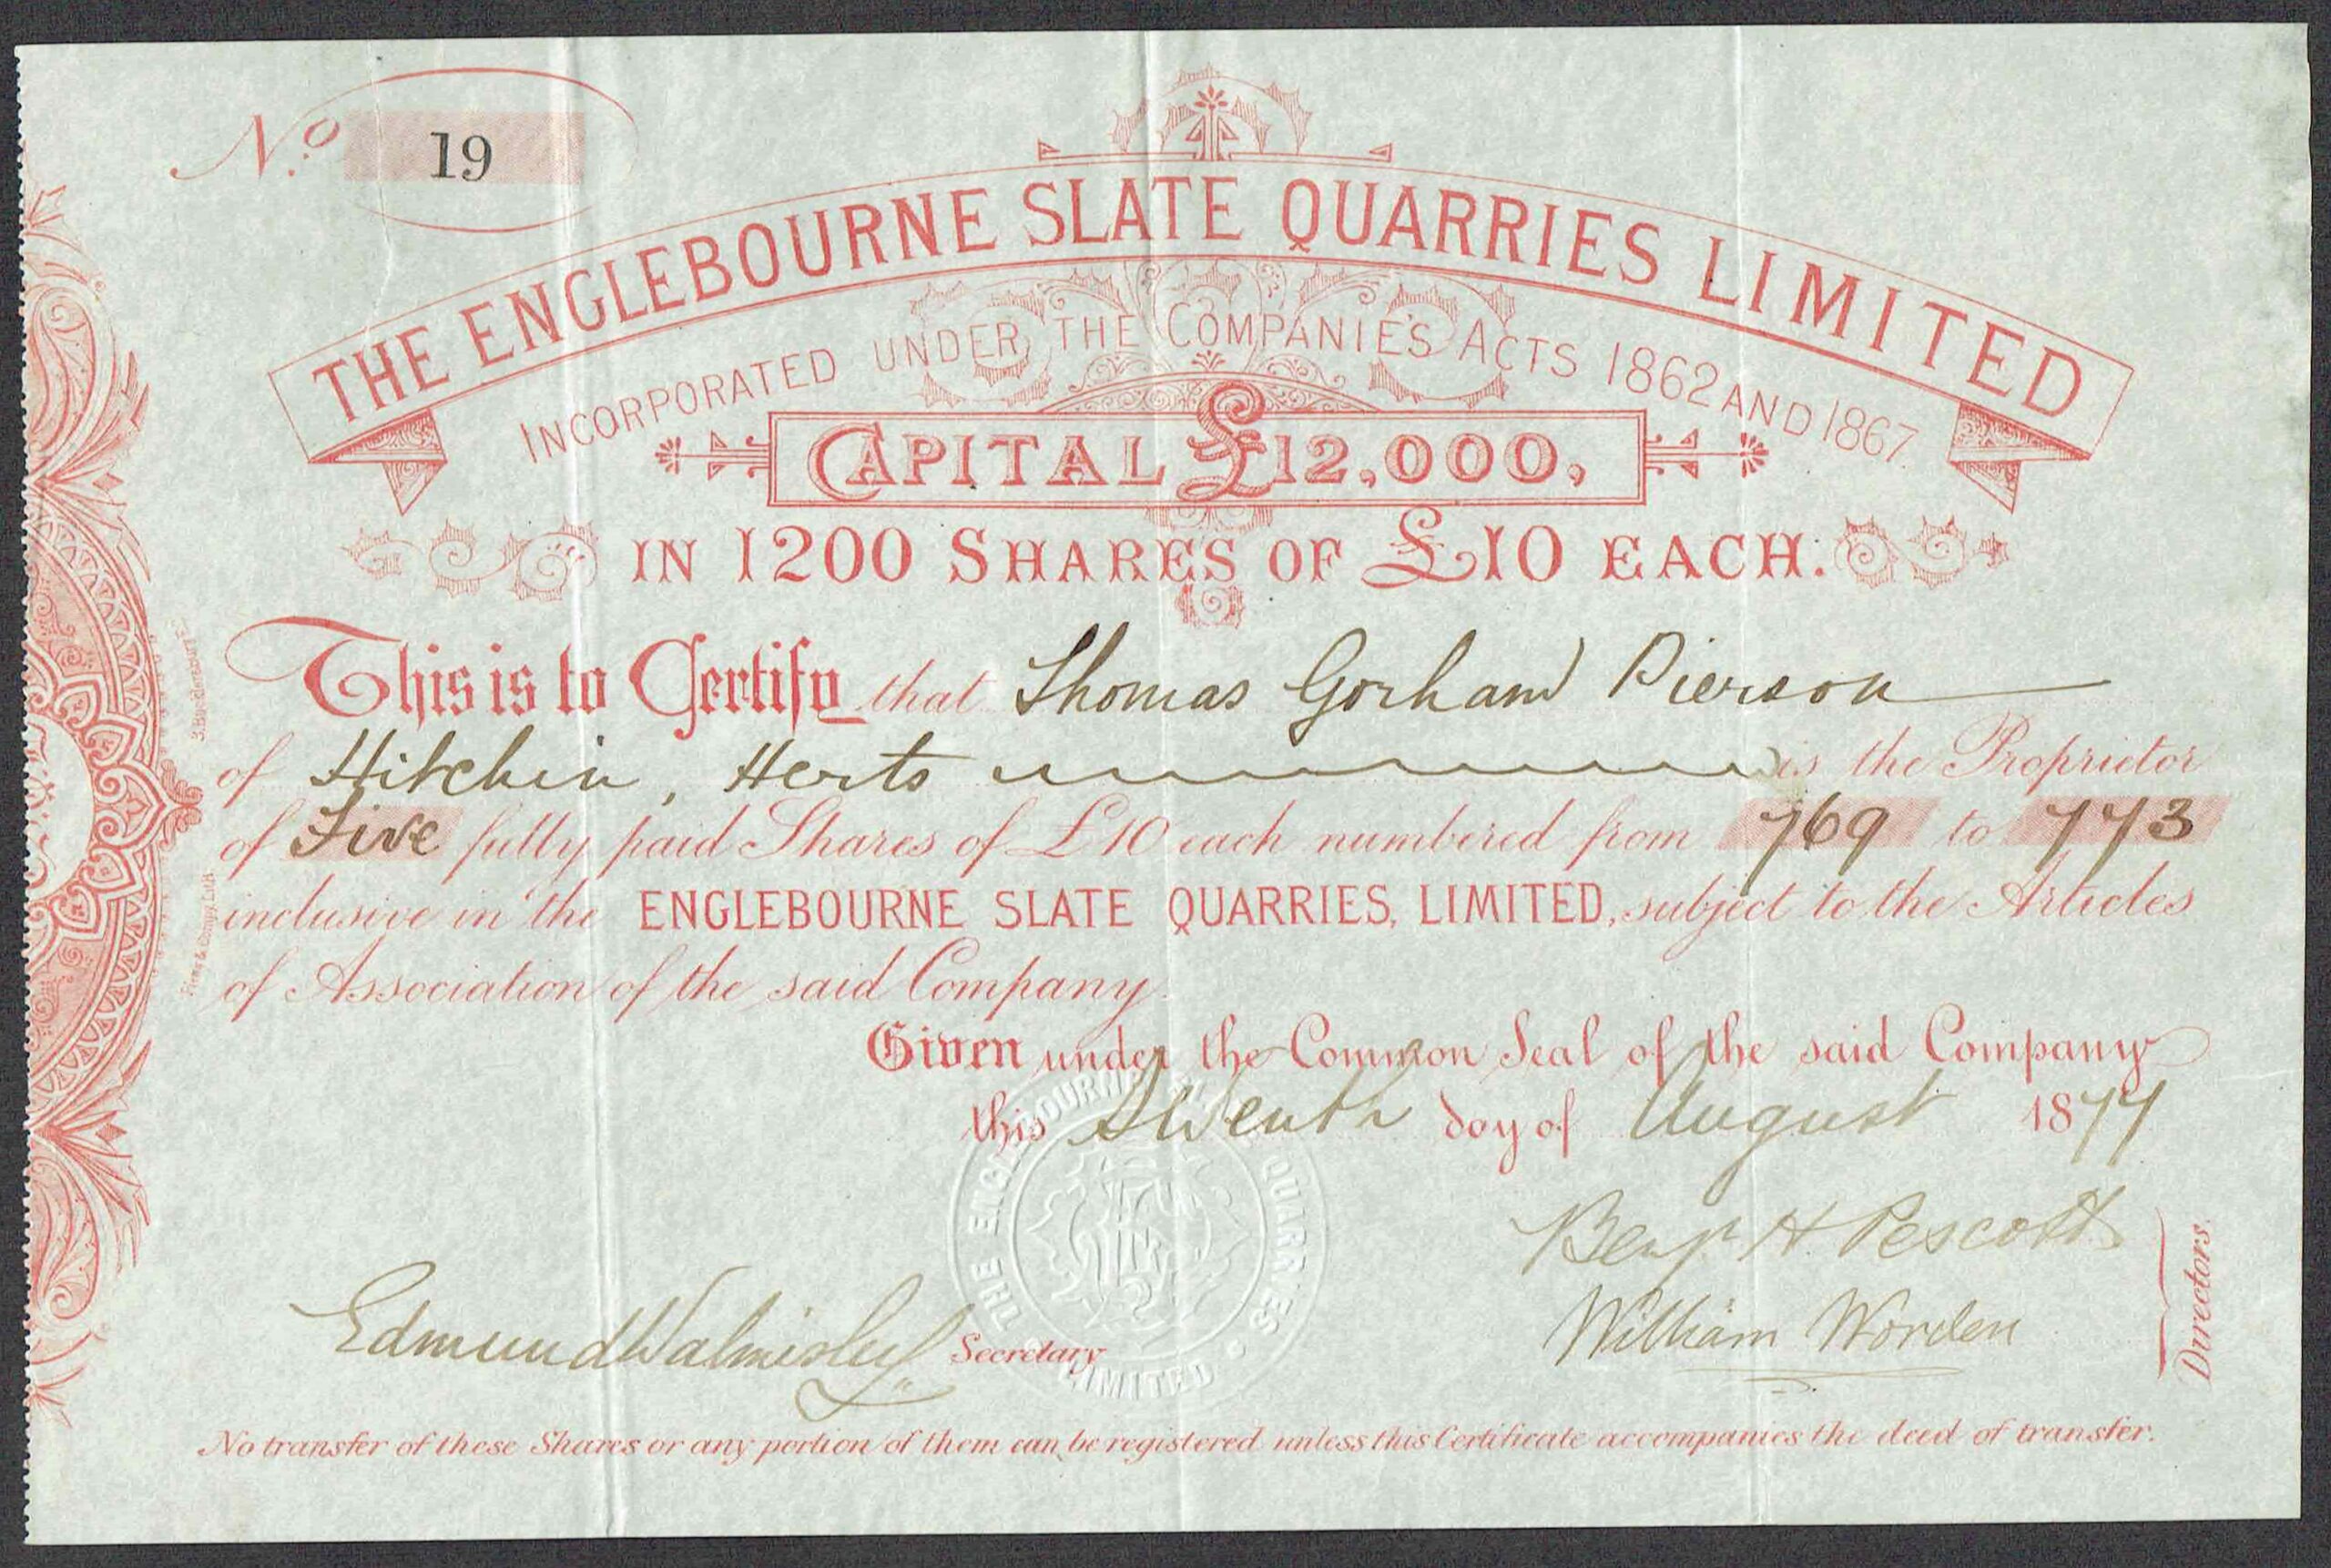 No. 19
THE ENGLEBOURNE SLATE QUARRIES LIMITED
INCORPORATED UNDER THE COMPANIES ACTS 1862 AND 1867.
CAPITAL £12,000,
IN 1200 SHARES OF £10 EACH.
This is to Certify that Thomas Gorham Pierson
of Hitchin, Herts is the Proprietor
of Five fully paid Shares of £10 each numbered from 769 to 773
inclusive in the ENGLEBOURNE SLATE QUARRIES, LIMITED, subject to the Articles
of Association of the said Company.
Given under the Common Seal of the said Company
this Seventh day of August 1877
Benj. H. Pescott
William Worden
Directors.
Edmund Walmisley Secretary
THE ENGLEBOURNE SLATE QUARRIES LIMITED
No transfer of these Shares or any portion of them can be registered unless this Certificate accompanies the deed of transfer.